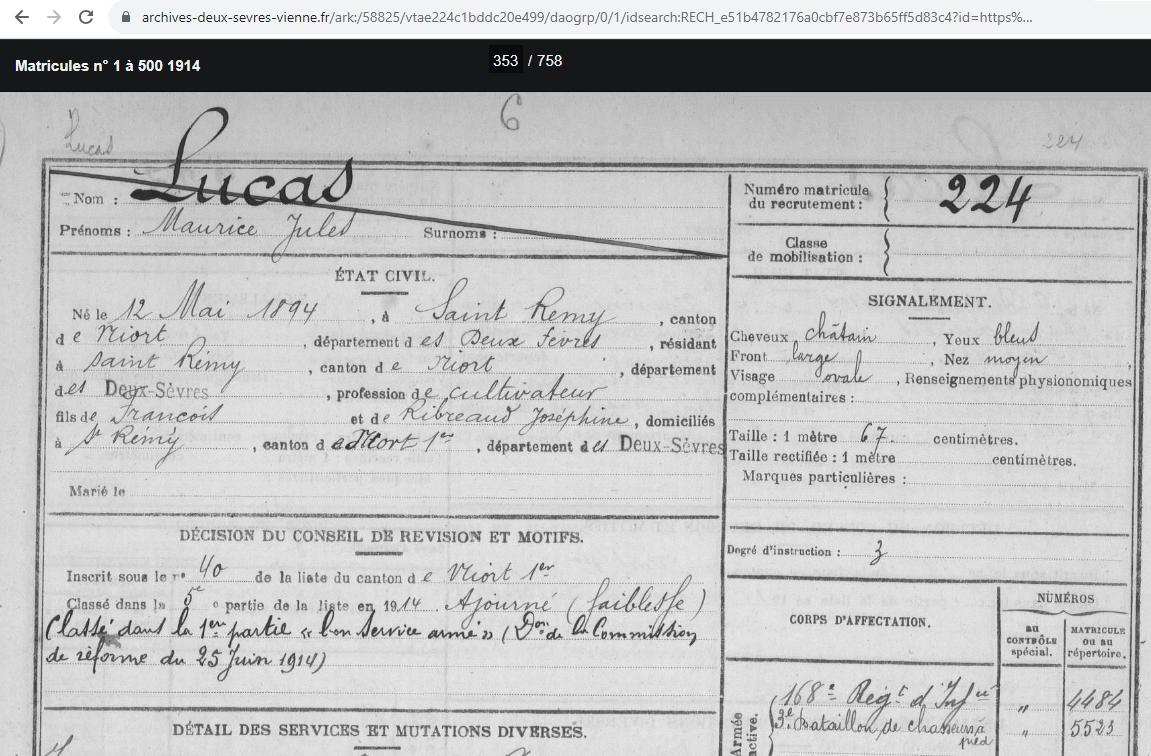 archives-deux-sevres-vienne.fr/ark:/58825/vtae224c1bddc20e499/daogrp/0/1/idsearch:RECH_e51b4782176a0cbf7e873b65ff5d83c4?id=https%...
Matricules n° 1 à 500 1914
353 / 758
6
Lucas
224
Nom : Lucas
Prénoms : Maurice Jules Surnoms :
ÉTAT CIVIL.
Né le 12 Mai 1894, à Saint Remy, canton
de Niort, département des Deux Sèvres, résidant
à Saint Rémy, canton de Niort, département
des Deux-Sèvres, profession de cultivateur
fils de François et de Ribreaud Joséphine, domiciliés
à St Rémy, canton de Niort 1er, département des Deux-Sèvres
Marié le
DÉCISION DU CONSEIL DE REVISION ET MOTIFS.
Inscrit sous le n° 40 de la liste du canton de Niort 1er
Classé dans la 5e partie de la liste en 1914. Ajourné (faiblesse)
Classé dans la 1ère partie « bon service armé » (Don de la Commission
de réforme du 25 Juin 1914)
DÉTAIL DES SERVICES ET MUTATIONS DIVERSES.
Numéro matricule
du recrutement : 224
Classe
de mobilisation :
SIGNALEMENT.
Cheveux châtain, Yeux bleus
Front large, Nez moyen
Visage ovale, Renseignements physionomiques
complémentaires :
Taille : 1 mètre 67. centimètres.
Taille rectifiée : 1 mètre centimètres.
Marques particulières :
Degré d'instruction : 3
CORPS D'AFFECTATION.
NUMÉROS
au
CONTRÔLE
spécial.
MATRICULE
ou au
répertoire.
Armée
active.
168e Régt d'Infie " 4484
3e Bataillon de chasseurs à pied " 5523